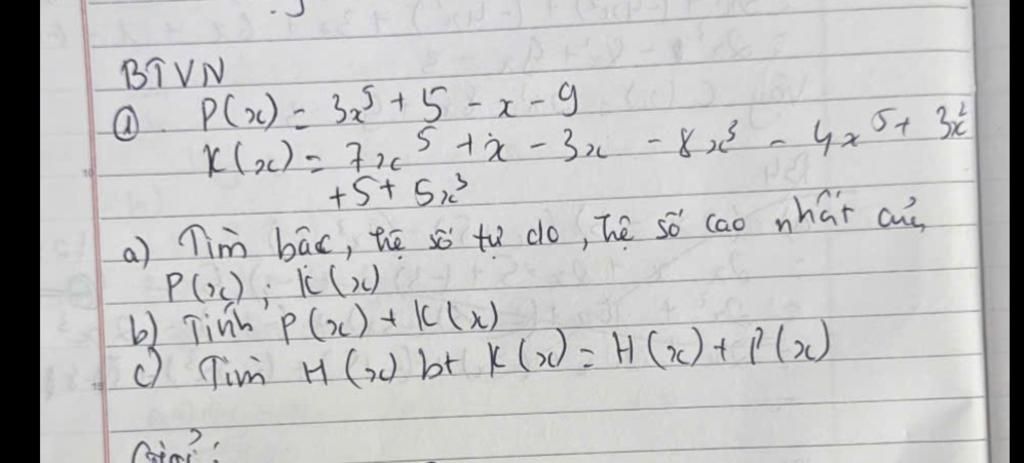 BTVN
① P(x) = 3x⁵ + 5 - x - 9
K(x) = 7x⁵ + x - 3x - 8x³ - 4x⁵ + 3x²
+ 5 + 5x³
a) Tìm bậc, hệ số tự do, hệ số cao nhất của
P(x); K(x)
b) Tính P(x) + K(x)
c) Tìm H(x) bt K(x) = H(x) + P(x)
Giải: